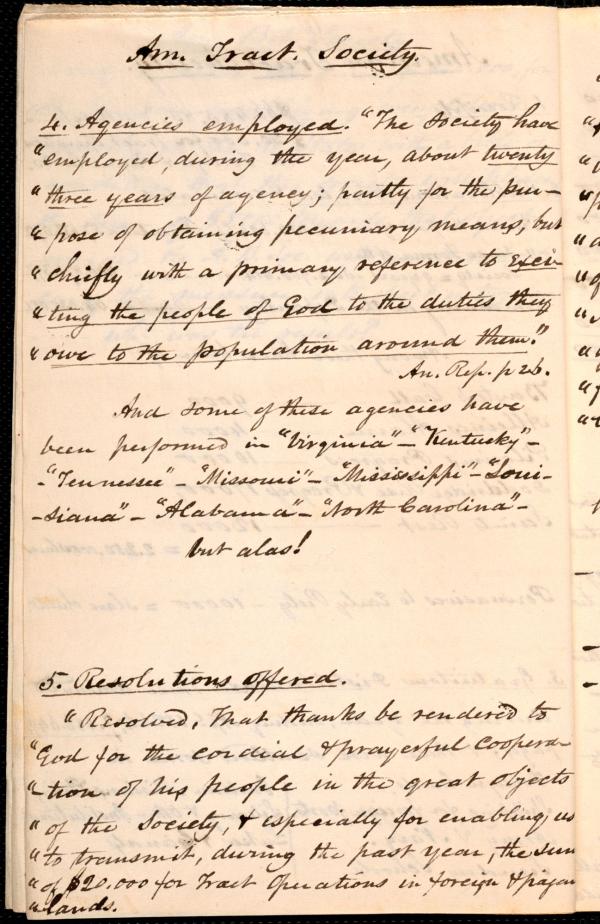 Am. Tract. Society.
4. Agencies employed. "The Society have
"employed, during the year, about twenty
"three years of agency; partly for the pur-
"pose of obtaining pecuniary means, but
"chiefly with a primary reference to exci-
"ting the people of God to the duties they
"owe to the population around them."
An. Rep. p 26.
And some of these agencies have
been performed in "Virginia" - "Kentucky" -
- "Tennessee" - "Missouri" - "Mississippi" - "Loui-
-siana" - "Alabama" - "North Carolina" -
but alas!
5. Resolutions offered.
"Resolved, That thanks be rendered to
"God for the cordial & prayerful coopera-
"-tion of his people in the great objects
"of the Society, & especially for enabling us
"to transmit, during the past year, the sum
"of $20.000 for Tract Operations in foreign & pagan
"lands.